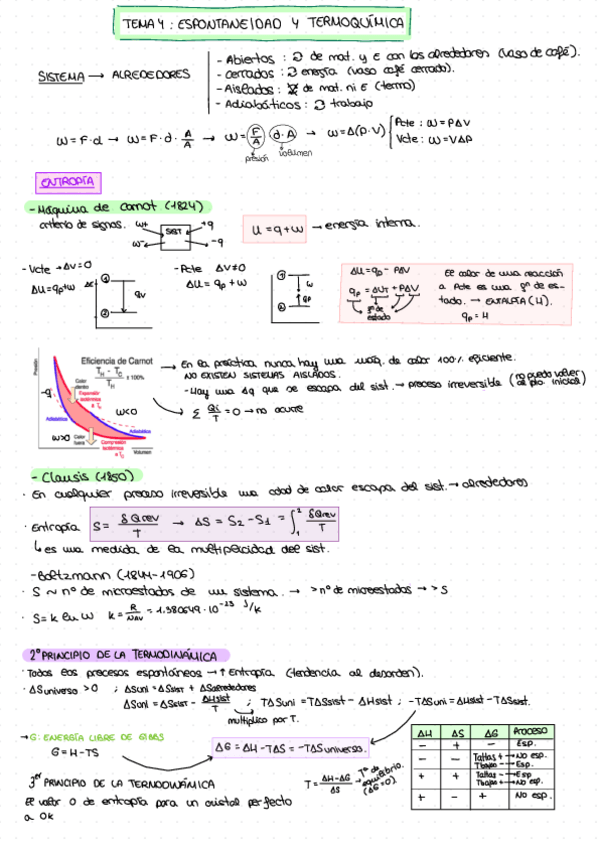 TEMA 4: ESPONTANEIDAD Y TERMOQUÍMICA
SISTEMA → ALREDEDORES
- Abiertos: de mat. y E con los alrededores (vaso de café).
- Cerrados: energía (vaso café cerrado).
- Aislados: de mat. ni E (termo)
- Adiabáticos: trabajo
W = F·d → W = F·d·A/A → W = (F/A)(d·A) → W = Δ(P·V)
Pcte: W = PΔV
Vcte: W = VΔP
presión volumen
ENTROPÍA
- Máquina de Carnot (1824)
criterio de signos.
w+ +q
SIST
w- -q
U = q + w → energía interna.
- Vcte → ΔV=0
ΔU = qv + w
ΔE
1
2
qv
- Pcte ΔV≠0
ΔU = qp + w
w
qp
ΔU = qp - PΔV
qp = ΔU + PΔV
fº de estado
El calor de una reacción
a Pcte es una fº de es-
tado. → ENTALPÍA (H).
qp = H
Presión
Eficiencia de Carnot
TH - TC / TH x 100%
Calor dentro
Expansión isotérmica a TH
Adiabática
Adiabática
Calor fuera
Compresión isotérmica a TC
Volumen
w<0
w>0
→ En la práctica nunca hay una máq. de calor 100% eficiente.
NO EXISTEN SISTEMAS AISLADOS.
- Hay una Δq que se escapa del sist. → proceso irreversible (no puedo volver al pto. inicial)
Σ Qi/T = 0 → no ocurre
- Clausis (1850)
· En cualquier proceso irreversible una cdad de calor escapa del sist. → alrededores
· Entropía S = δQrev/T → ΔS = S2 - S1 = ∫₁² δQrev/T
↳ es una medida de la multiplicidad del sist.
- Boltzmann (1844-1906)
· S ~ nº de microestados de un sistema. → >nº de microestados → >S
· S = k ln w k = R/NAV = 1.380649·10⁻²³ J/K
2º PRINCIPIO DE LA TERMODINÁMICA
· Todos los procesos espontáneos → ↑ Entropía (tendencia al desorden).
· ΔSuniverso > 0 ; ΔSuni = ΔSsist + ΔSalrededores
ΔSuni = ΔSsist - ΔHsist/T ; TΔSuni = TΔSsist - ΔHsist ; -TΔSuni = ΔHsist - TΔSsist.
multiplico por T.
→ G: ENERGÍA LIBRE DE GIBBS
G = H - TS
ΔG = ΔH - TΔS = -TΔSuniverso.
3er PRINCIPIO DE LA TERMODINÁMICA
El valor 0 de entropía para un cristal perfecto
a 0K
T = ΔH-ΔG/ΔS → Tª de equilibrio. (ΔG=0)
ΔH ΔS ΔG Proceso
- + - Esp.
- - Taltas + → No esp.
Tbajas - → Esp.
+ + Taltas - → Esp
Tbajas + → No esp.
+ - + No esp.